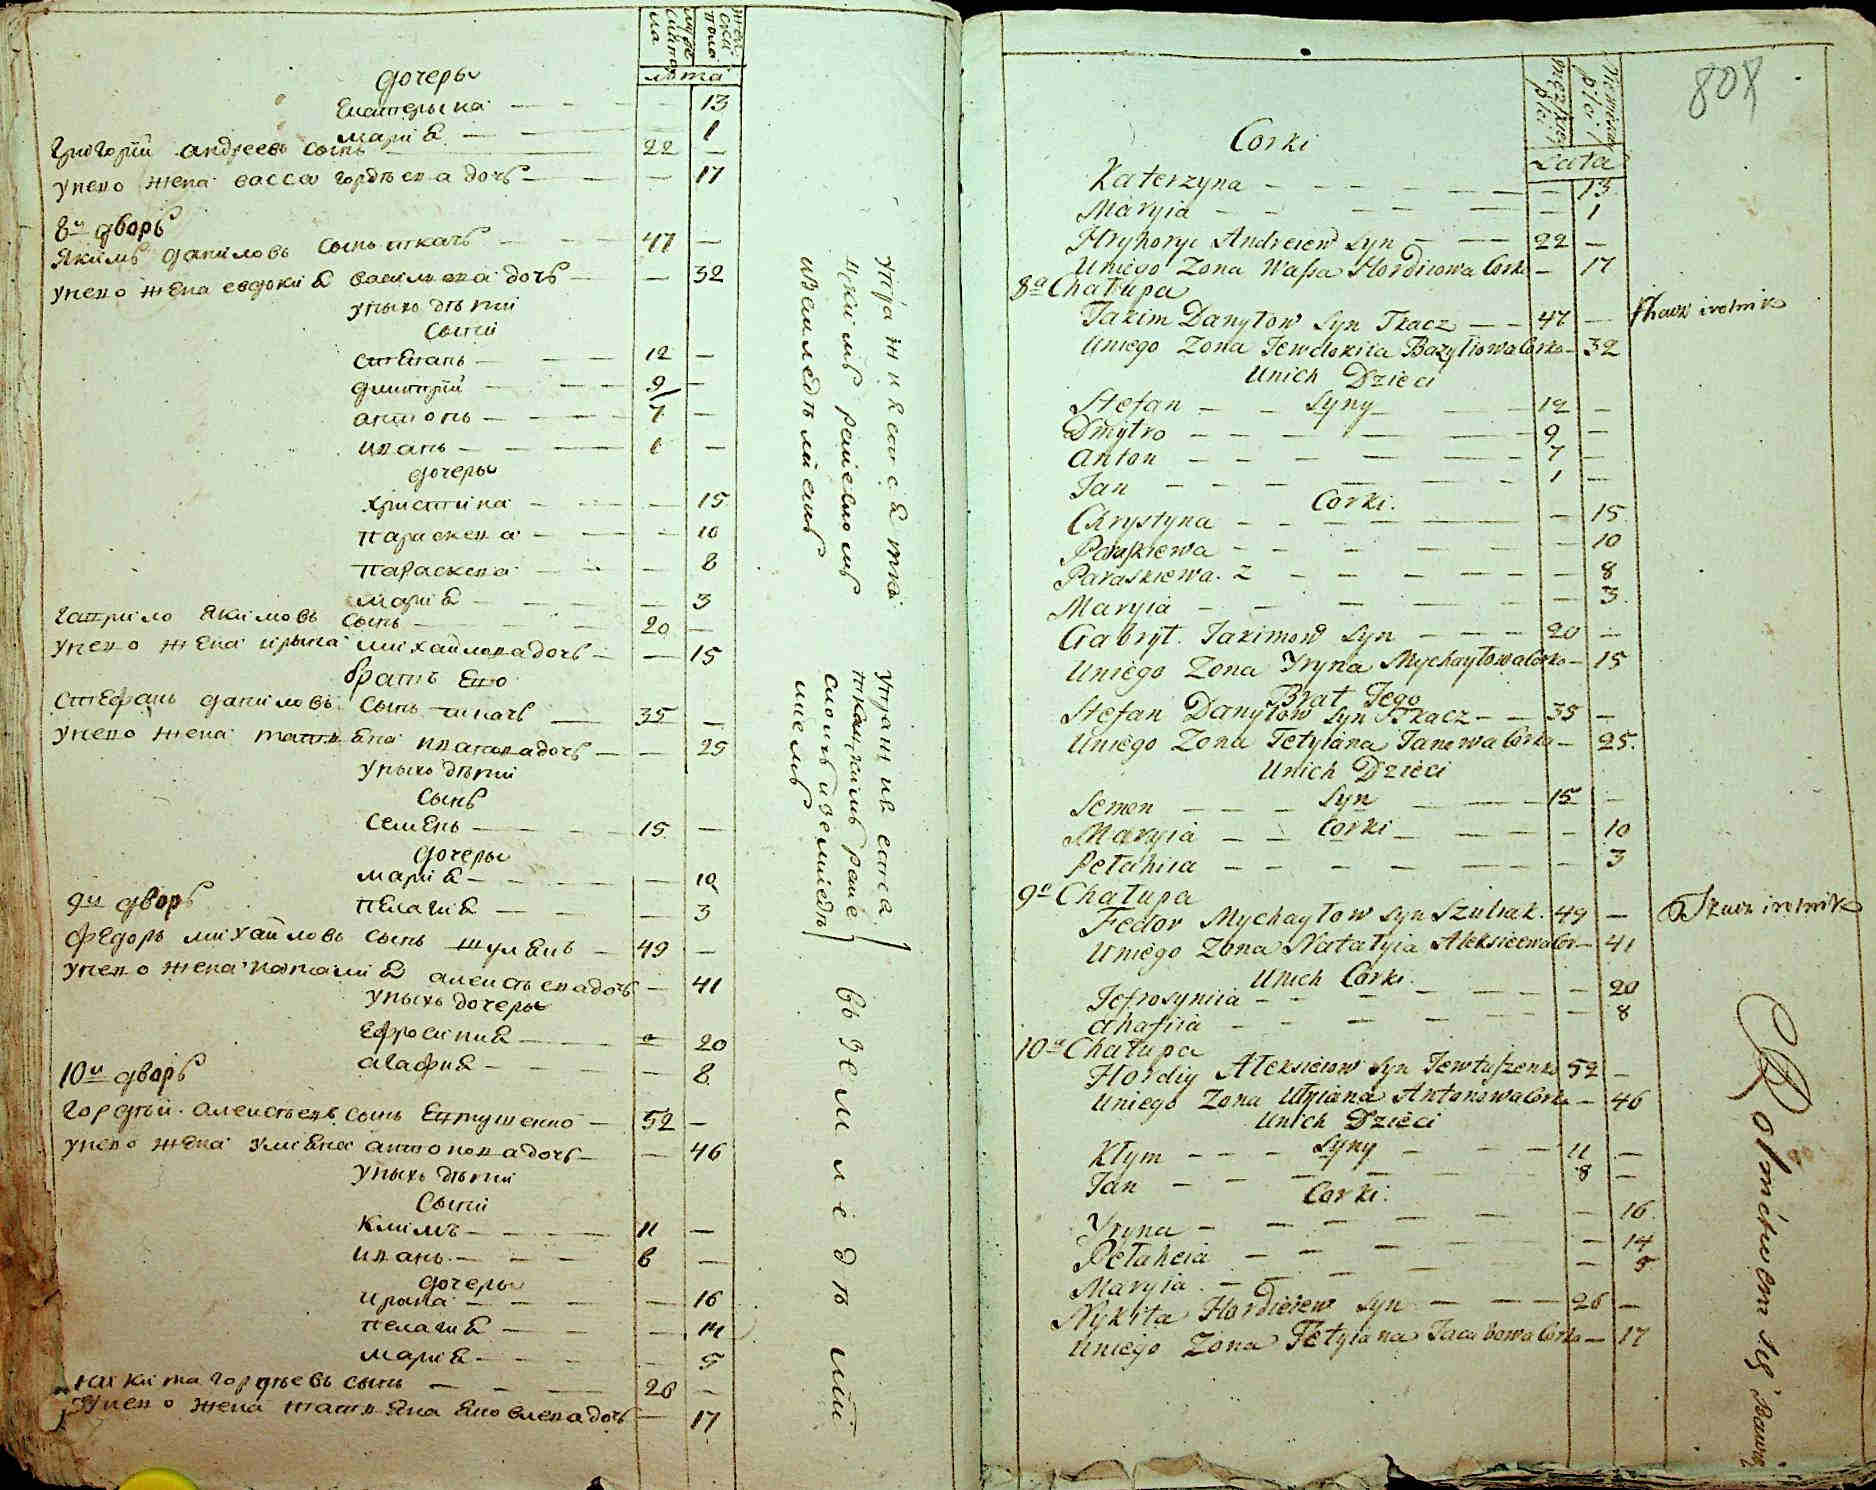 мужеска пола
женска пола
лѣта
дочеры
Екатерына — — — — 13
марія — — — 1
Григорій андреевъ сынъ — 22 —
у него жена васса гордѣева дочъ — — 17
8й дворъ
Якимъ даниловъ сынъ ткачъ — 47 —
у него жена евдокия василева дочъ — — 32
у ныхъ дѣти
сыни
стефанъ — — — 12 —
дмитрій — — — 9 —
антонъ — — — 7 —
иванъ — — — 1 —
дочеры
христина — — — 15
параскева — — — 10
параскева — — — 8
марія — — — 3
гаврило якимовъ сынъ — — 20 —
у него жена ирына михайлова дочъ — — 15
братъ Его
стефанъ даниловъ сынъ ткачъ — 35 —
у него жена татьяна иванова дочъ — — 25
у ныхъ дѣти
сынъ
семенъ — — — 15 —
дочеры
марія — — — 10
пелагия — — — 3
9й дворъ
федоръ михайловъ сынъ шуляк — 49 —
у него жена наталия алексѣева дочъ — 41
у ныхъ дочеры
ефросиния — — 20
агафия — — — 8
10й дворъ
гордѣй алексѣевъ сынъ Евтушенко — 52 —
у него жена улияна антонова дочъ — — 46
у ныхъ дѣти
сыни
климъ — — — 11 —
иванъ — — — 8 —
дочеры
ирына — — — 16
пелагия — — — 14
марія — — — 5
никита гордѣевъ сынъ — — 26 —
у него жена татьяна яковлева дочъ — 17
упражняется
ткацкимъ
ремесломъ
и земледѣлием
упражняется
ткацкимъ
и земледѣ
лием
въ земледѣлии
808
męzkiei płci
niewieściey płci
Lata
Corki
Katerzyna — — — — 13
Maryia — — — — 1
Hryhoryi Andreiew Syn — — 22 —
Uniego Zona Wassa Hordiiowa Corka — 17
8a Chałupa
Jakim Danyłow Syn Tkacz — — 47 — Tkacz i rolnik
Uniego Zona Jewdokiia Bazyliowa Corka — 32
Unich Dzieci
Syny
Stefan — — — 12 —
Dmytro — — — 9 —
Anton — — — 7 —
Jan — — — 1 —
Corki
Chrystyna — — — 15
Paraskiewa — — — 10
Paraskiewa. 2 — — — 8
Maryia — — — 3
Gabrył. Jakimow Syn — — 20 —
Uniego Zona Yryna Mychayłowa Corka — 15
Brat Jego
Stefan Danyłow Syn Tkacz — — 35 —
Uniego Zona Tetyiana Janowa Corka — 25
Unich Dzieci
Syn
Semen — — — 15 —
Corki
Maryia — — — 10
Pełahiia — — — 3
9a Chałupa
Fedor Mychayłow Syn Szuliak. 49 — Tkacz i rolnik
Uniego Zona Natalyia Aleksieiewa Cor — 41
Unich Córki
Jefrosyniia — — — 20
Ahafiia — — — 8
10a Chałupa
Hordiy Aleksieiow Syn Jewtuszenko 52 —
Uniego Zona Ulyiana Antonowa Corka — 46
Unich Dzieci
Syny
Kłym — — — 11 —
Jan — — — 8 —
Corki
Yryna — — — 16
Pełaheia — — — 14
Maryia — — — 5
Nykita Hordieiew Syn — — — 26 —
Uniego Zona Tetyiana Jacubowa Corka — 17
Rolnictwem się bawią